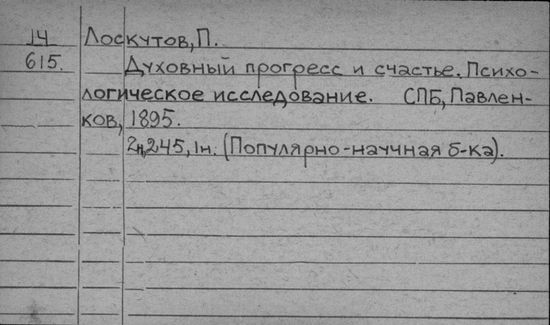 14 Лоскутов, П.
615. Духовный прогресс и счастье. Психо-
логическое исследование. СПБ, Павлен-
ков, 1895.
2н, 245, 1н. (Популярно-научная б-ка).